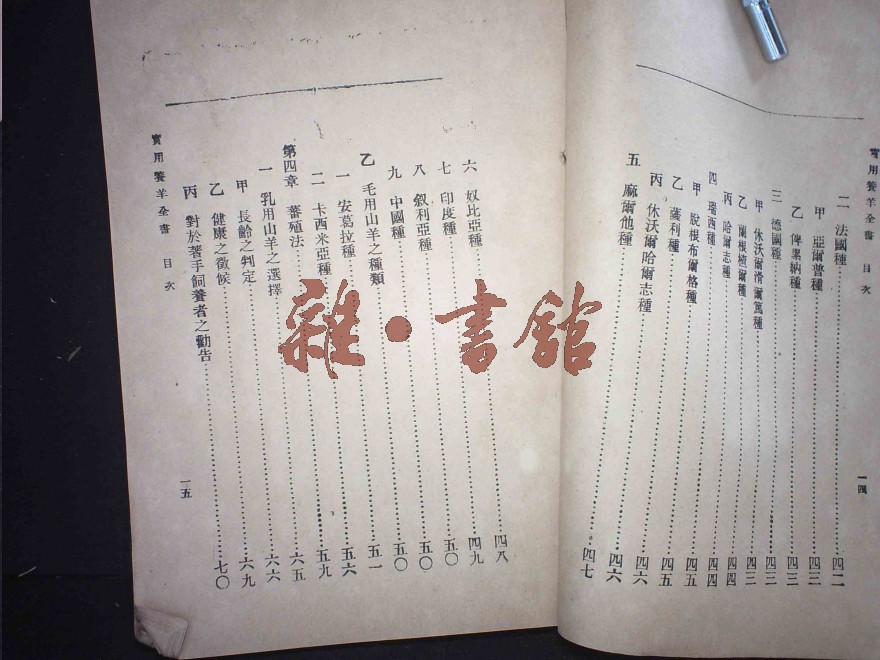 實用養羊全書 目次 一四
二 法國種 四二
甲 亞爾普種 四三
乙 俾業納種 四三
三 德國種 四三
甲 休沃爾滑爾篤種 四三
乙 蘭根槎爾種 四四
丙 哈爾志種 四四
四 瑞西種 四五
甲 脫根布爾格種 四五
乙 薩利種 四六
丙 休沃爾哈爾志種 四六
五 麻爾他種 四七
六 奴比亞種 四八
七 印度種 四九
八 叙利亞種 五〇
九 中國種 五〇
乙 毛用山羊之種類 五〇
一 安葛拉種 五一
二 卡西米亞種 五六
第四章 蕃殖法 五九
一 乳用山羊之選擇 六五
甲 長齡之判定 六六
乙 健康之徵候 六九
丙 對於著手飼養者之勸告 七〇
實用養羊全書 目次 一五
雜·書館